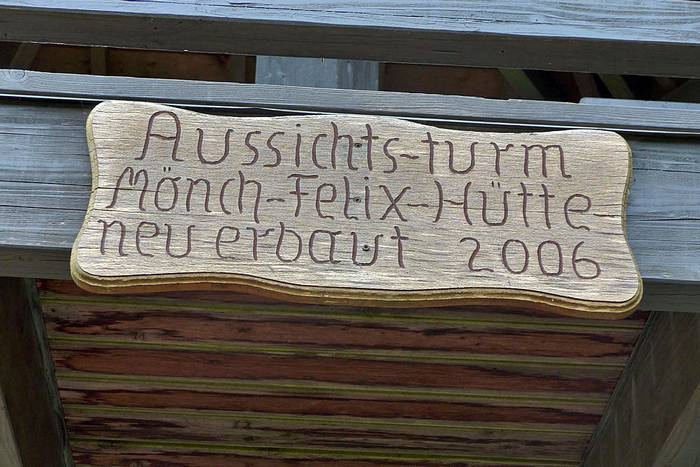 Aussichts-turm
Mönch-Felix-Hütte
neu erbaut 2006